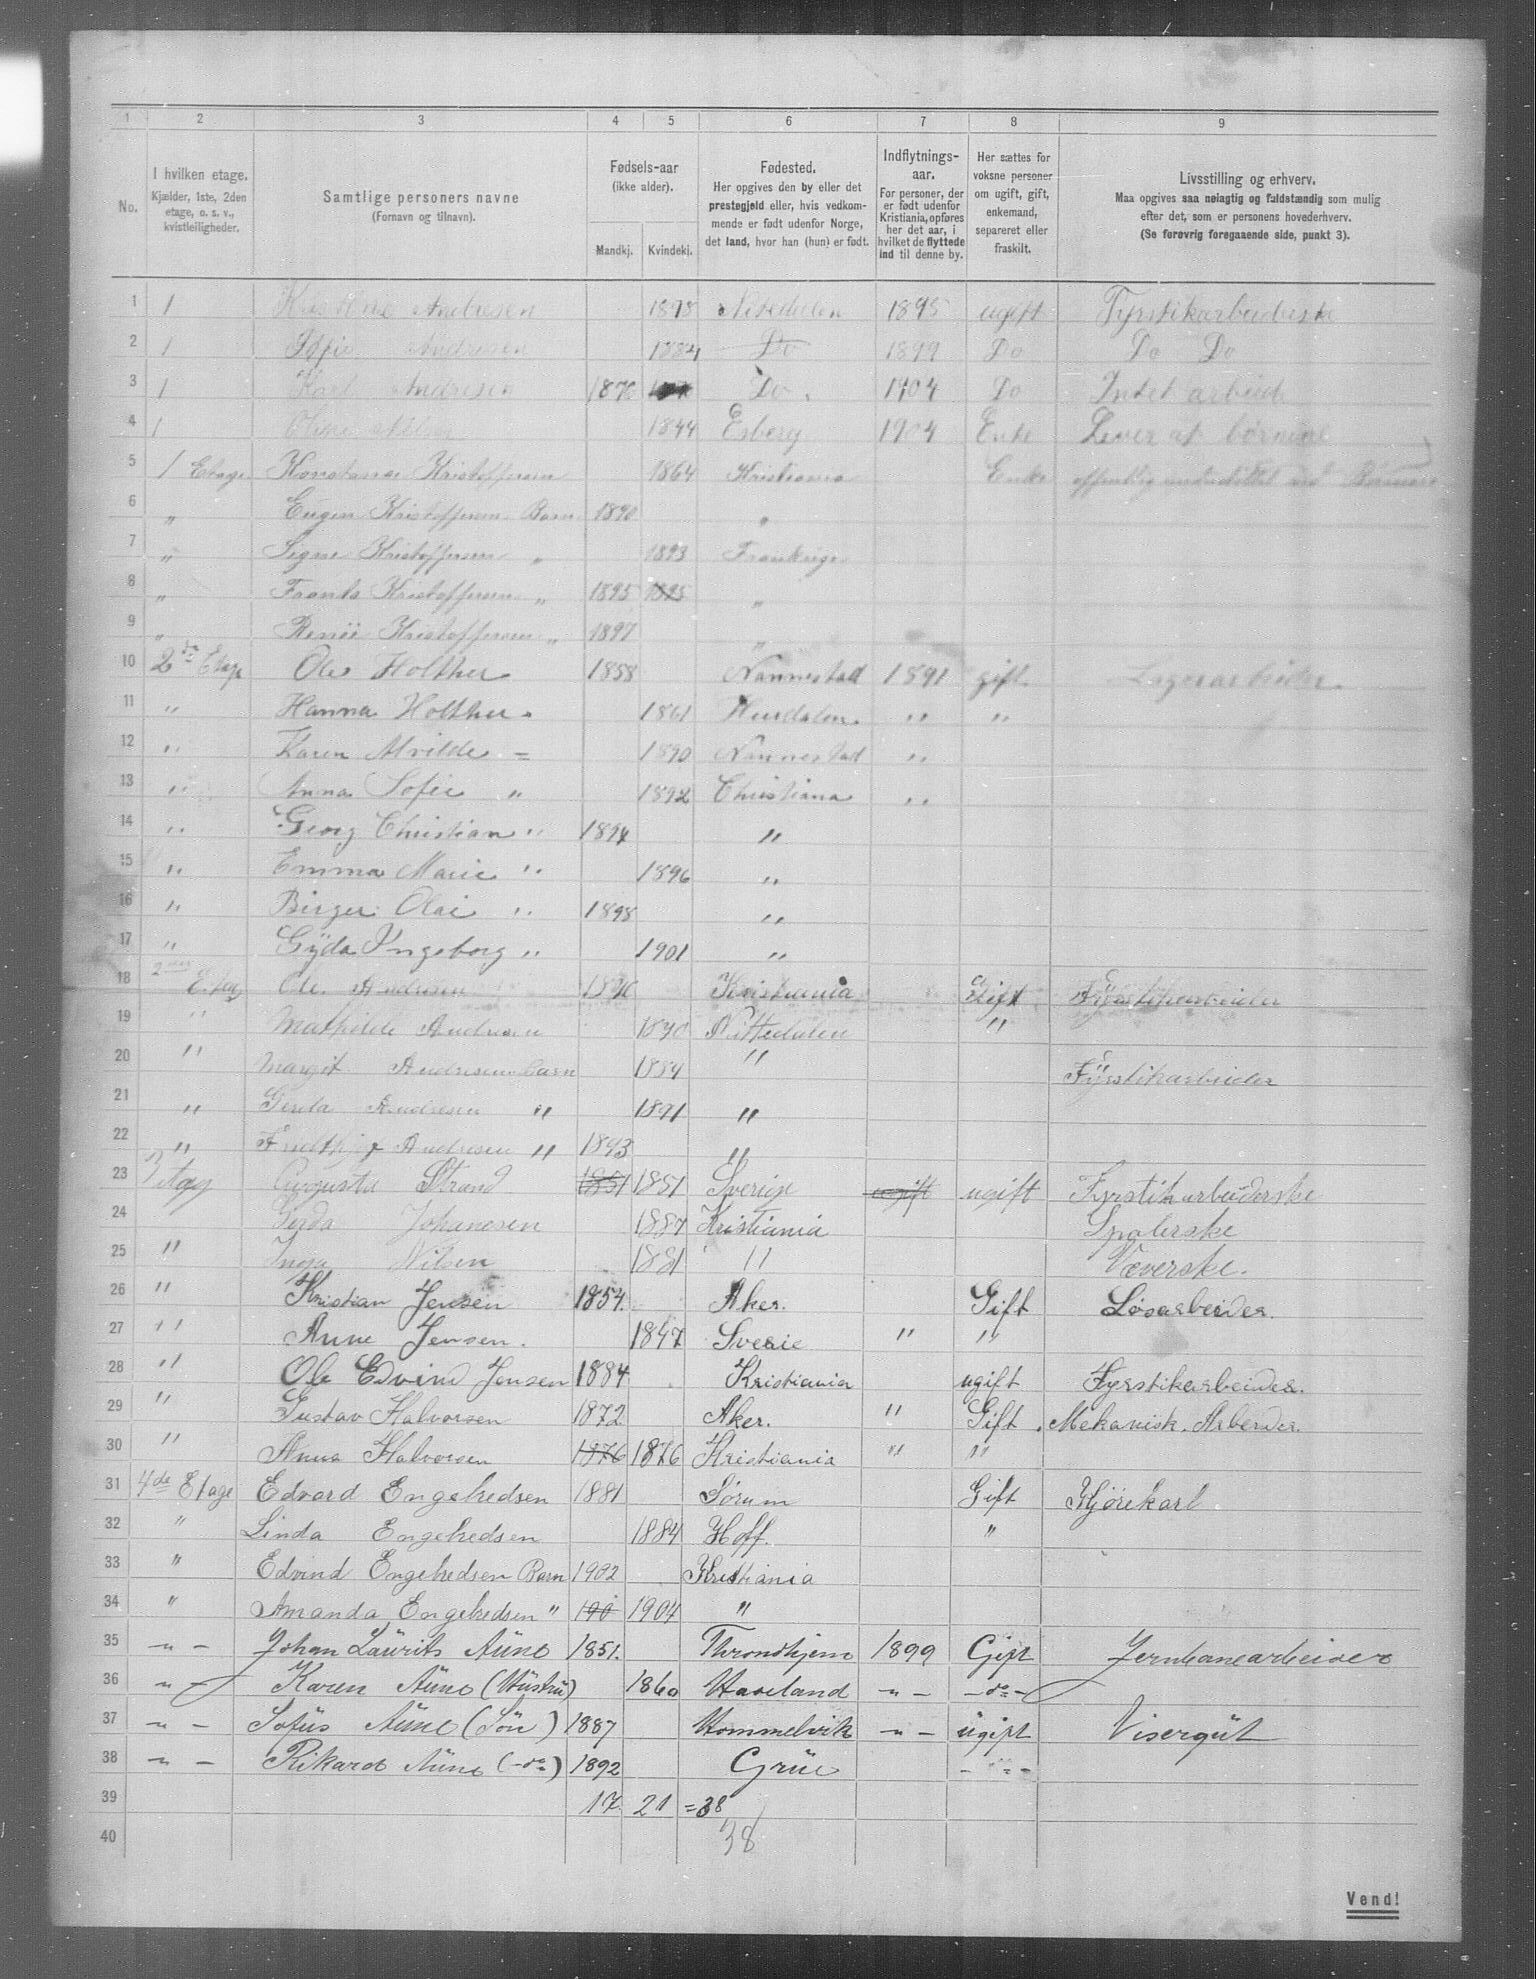 1 2 3 4 5 6 7 8 9
No.
I hvilken etage.
Kjælder, 1ste, 2den
etage, o. s. v.,
kvistleiligheder.
Samtlige personers navne
(Fornavn og tilnavn).
Fødsels-aar
(ikke alder).
Mandkj. Kvindekj.
Fødested.
Her opgives den by eller det
prestegjeld eller, hvis vedkom-
mende er født udenfor Norge,
det land, hvor han (hun) er født.
Indflytnings-
aar.
For personer, der
er født udenfor
Kristiania, opføres
her det aar, i
hvilket de flyttede
ind til denne by.
Her sættes for
voksne personer
om ugift, gift,
enkemand,
separeret eller
fraskilt.
Livsstilling og erhverv.
Maa opgives saa nøiagtig og fuldstændig som mulig
efter det, som er personens hovederhverv.
(Se forøvrig foregaaende side, punkt 3).
1 1 Andresen 1895 ugift Fyrstikarbeiderske
2 1 Andresen 1884 Do 1899 Do Do Do
3 1 Karl Andresen 1876 Do. 1904 Do Intet arbeide
4 1 1844 Esberg 1904 Enke Lever af børnene
5 1 Etage Konstanse Kristoffersen 1864 Kristiania Enke
6 " Eugen Kristoffersen Barn 1890 "
7 " Signe Kristoffersen " 1893 Frankrige
8 " Frants Kristoffersen " 1895 1895 "
9 " Kristoffersen " 1897 "
10 2den Etage Ole Holther 1858 Nannestad 1891 gift Lagerarbeider.
11 " Hanna Holther 1861 Hurdalen " "
12 " Karen Alvilde = 1890 Nannestad "
13 " Anna Sofie " 1892 Christiana "
14 " Georg Christian " 1894 "
15 " Emma Marie " 1896 "
16 " Birger Olai " 1898 "
17 " Gÿda Yngeborg " 1901 "
18 Etag Ole Andresen Kristiania Gift Fyrstikarbeider
19 " Mathilde Andresen Nittedalen "
20 " Margit Andresen Barn 1884 " Fyrstikarbeider
21 " Gerda Andresen " 1891 "
22 " Andresen " 1893 "
23 3 Etag Augusta Strand 1851 1851 Sverige ugift ugift Fyrstikarbeiderske
24 Gerda Johanesen 1887 Kristiania Spolerske
25 " Inga Nilsen 1881 " Væverske.
26 " Kristian Jensen 1854. Aker. Gift Løsarbeider.
27 " Anne Jensen. 1847 Sverie " "
28 " Ole Edvind Jensen 1884 Kristiania ugift Fyrstikarbeider.
29 " Gustav Halvorsen 1872 Aker. " Gift. Mekanisk. Arbeider.
30 " Anna Halvorsen 1876 1876 Kristiania " "
31 4de Etage Edvard Engebredsen 1881 Sørum Gift Kjørekarl
32 " Linda Engebredsen 1884 Hoff. "
33 " Edvind Engebredsen Barn 1902 Kristiania
34 " Amanda Engebredsen " 190 1904 "
35 – " – Johan Laurits Aüne 1851. Throndhjem 1899 Gift Jernbanearbeider
36 – " – Karen Aüne (Hüstrü) 1860 – " – – do –
37 – " – Sofus Aüne (Sön) 1887 Hommelvik – " – ügift Visergüt
38 – " – Rikard Aüne (– do –) 1892 Grüe – " –
39 17. 21 = 38
40 38
Vend!